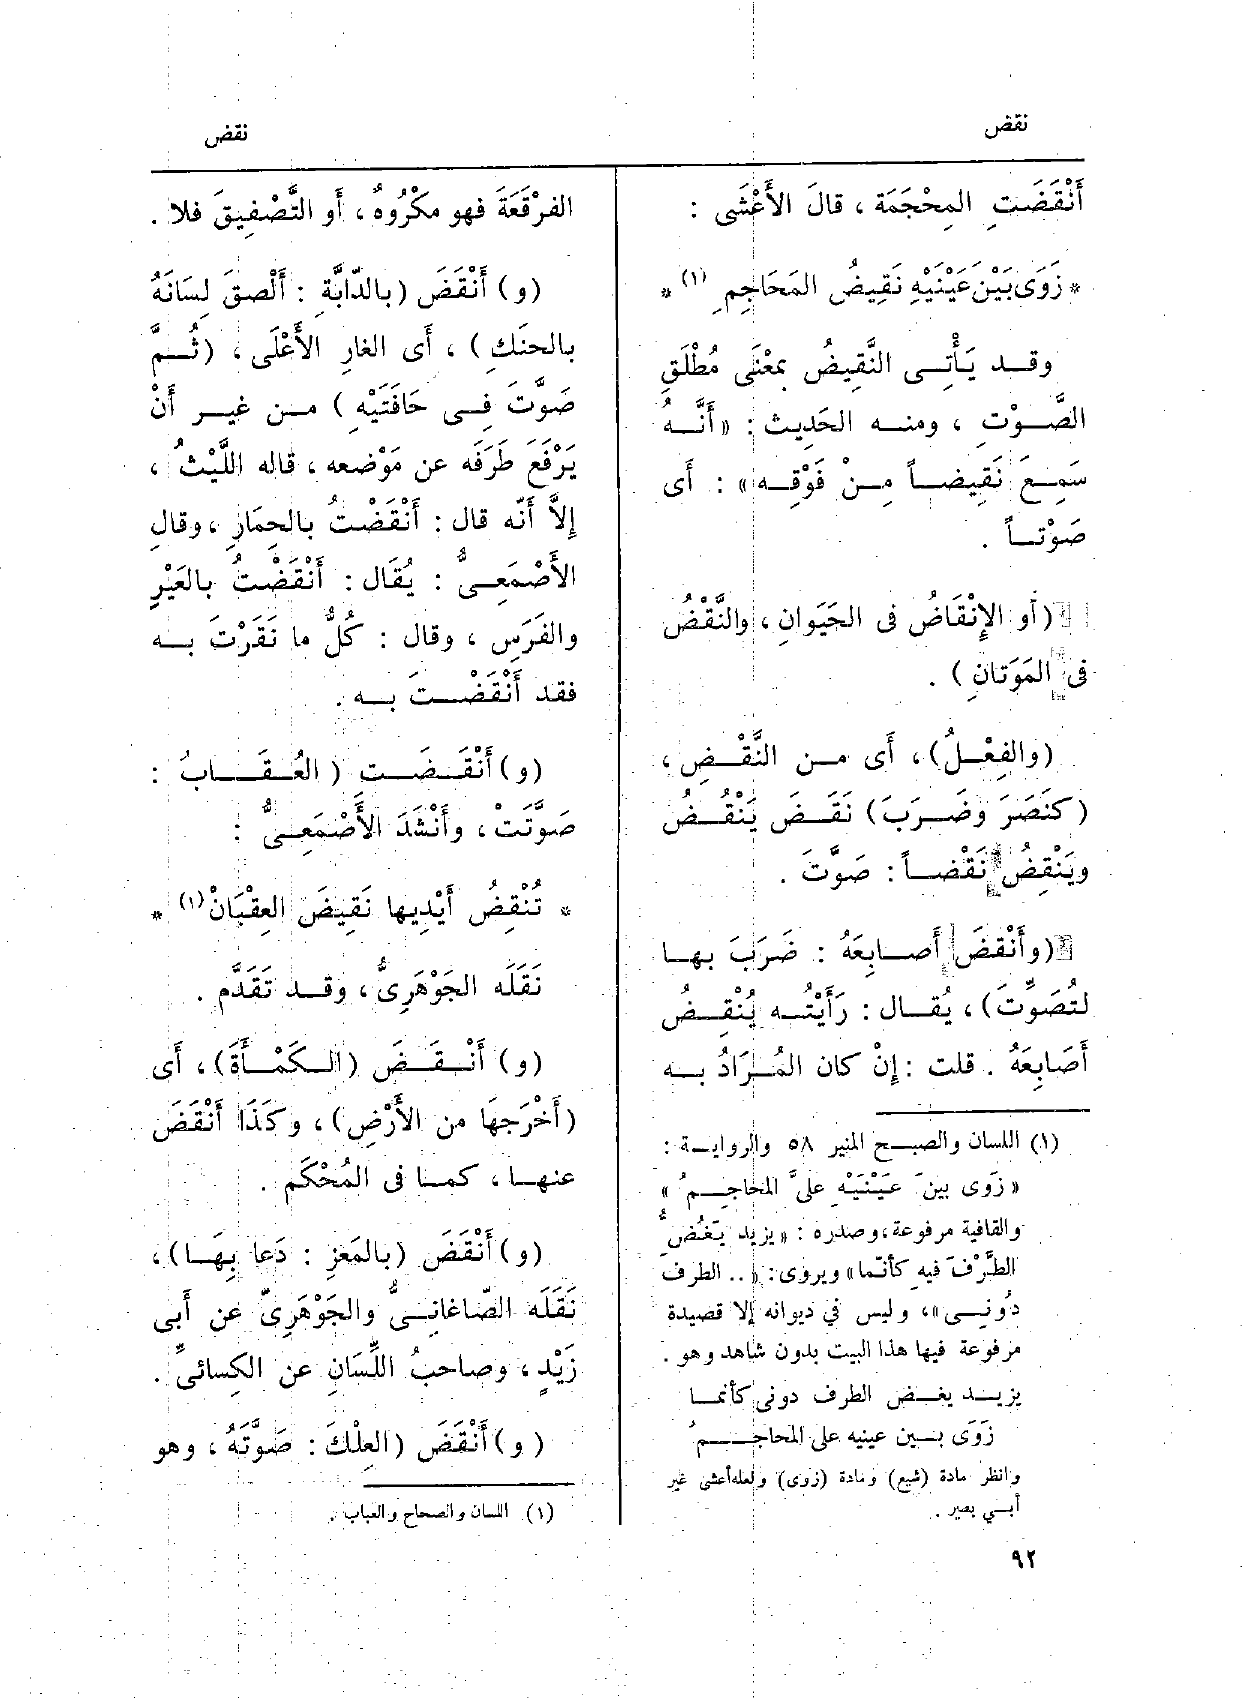 نقض
نقض
أَنْقَضَتِ المِحْجَمَة ، قالَ الأَعْشَى :
* زَوَى بَيْنَ عَيْنَيْهِ نَقِيضُ المَحَاجِمِ (١) *
وقد يَأْتِى النَّقِيضُ بمعْنَى مُطْلَقِ
الصَّوْتِ ، ومنه الحَدِيث : « أَنَّهُ
سَمِعَ نَقِيضاً مِنْ فَوْقِه » : أَى
صَوْتاً .
(أَو الإِنْقَاضُ فى الحَيَوانِ ، والنَّقْضُ
فى المَوَتانِ ) .
(والفِعْلُ) ، أَى من النَّقْضِ ،
(كنَصَرَ وضَرَبَ) نَقَضَ يَنْقُضُ
ويَنْقِضُ نَقْضاً : صَوَّتَ .
(وأَنْقَضَ أَصابِعَهُ : ضَرَبَ بها
لتُصَوِّتَ) ، يُقال : رَأَيْتُه يُنْقِضُ
أَصَابِعَهُ . قلت : إِنْ كان المُرَادُ به
(١) اللسان والصبح المنير ٥٨ والرواية :
« زَوى بينَ عَيْنَيْهِ علىَّ المحاجِمُ »
والقافية مرفوعة ، وصدره : « يزيد يَغُضُّ
الطَّرْفَ فيه كأنما » ويروى : « .. الطرف
دُونِى » ، وليس في ديوانه إلا قصيدة
مرفوعة فيها هذا البيت بدون شاهد وهو .
يزيد يغض الطرف دونى كأنما
زَوَى بين عينيه على المحاجمُ
وانظر مادة (شيع) ومادة (زوى) ولعله أعشى غير
أبي بصير .
٩٢
الفرْقَعَةَ فهو مكْرُوهٌ ، أَو التَّصْفِيقَ فلا .
(و) أَنْقَضَ (بالدّابَّةِ : أَلْصقَ لِسَانَهُ
بالحنَكِ) ، أَى الغارِ الأَعْلَى ، (ثُمَّ
صَوَّتَ فى حَافَتَيْهِ) من غير أَنْ
يَرْفَعَ طَرَفَه عن مَوْضعه ، قاله اللَّيْثُ ،
إِلاَّ أَنّه قال : أَنْقَضْتُ بالحِمَارِ ، وقال
الأَصْمَعِىُّ : يُقَال : أَنْقَضْتُ بالعَيْرِ
والفَرَسِ ، وقال : كُلُّ ما نَقَرْتَ به
فقد أَنْقَضْتَ به .
(و) أَنْقَضَت (العُقَابُ :
صَوَّتَتْ ، وأَنْشَدَ الأَصْمَعِىُّ :
* تُنْقِضُ أَيْدِيها نَقِيضَ العِقْبَانْ (١) *
نَقَلَه الجَوْهَرِىُّ ، وقد تَقَدَّم .
(و) أَنْقَضَ (الكَمْأَةَ) ، أَى
(أَخْرَجَها من الأَرْضِ) ، وكَذَا أَنْقَضَ
عنها ، كما فى المُحْكَم .
(و) أَنْقَضَ (بالمَعزِ : دَعا بِهَا) ،
نَقَلَه الصّاغانِىُّ والجَوْهَرِىّ عن أَبى
زَيْدٍ ، وصاحبُ اللِّسَانِ عن الكِسائىِّ .
(و) أَنْقَضَ (العِلْكَ : صَوَّتَهُ ، وهو
(١) اللسان والصحاح والعباب .